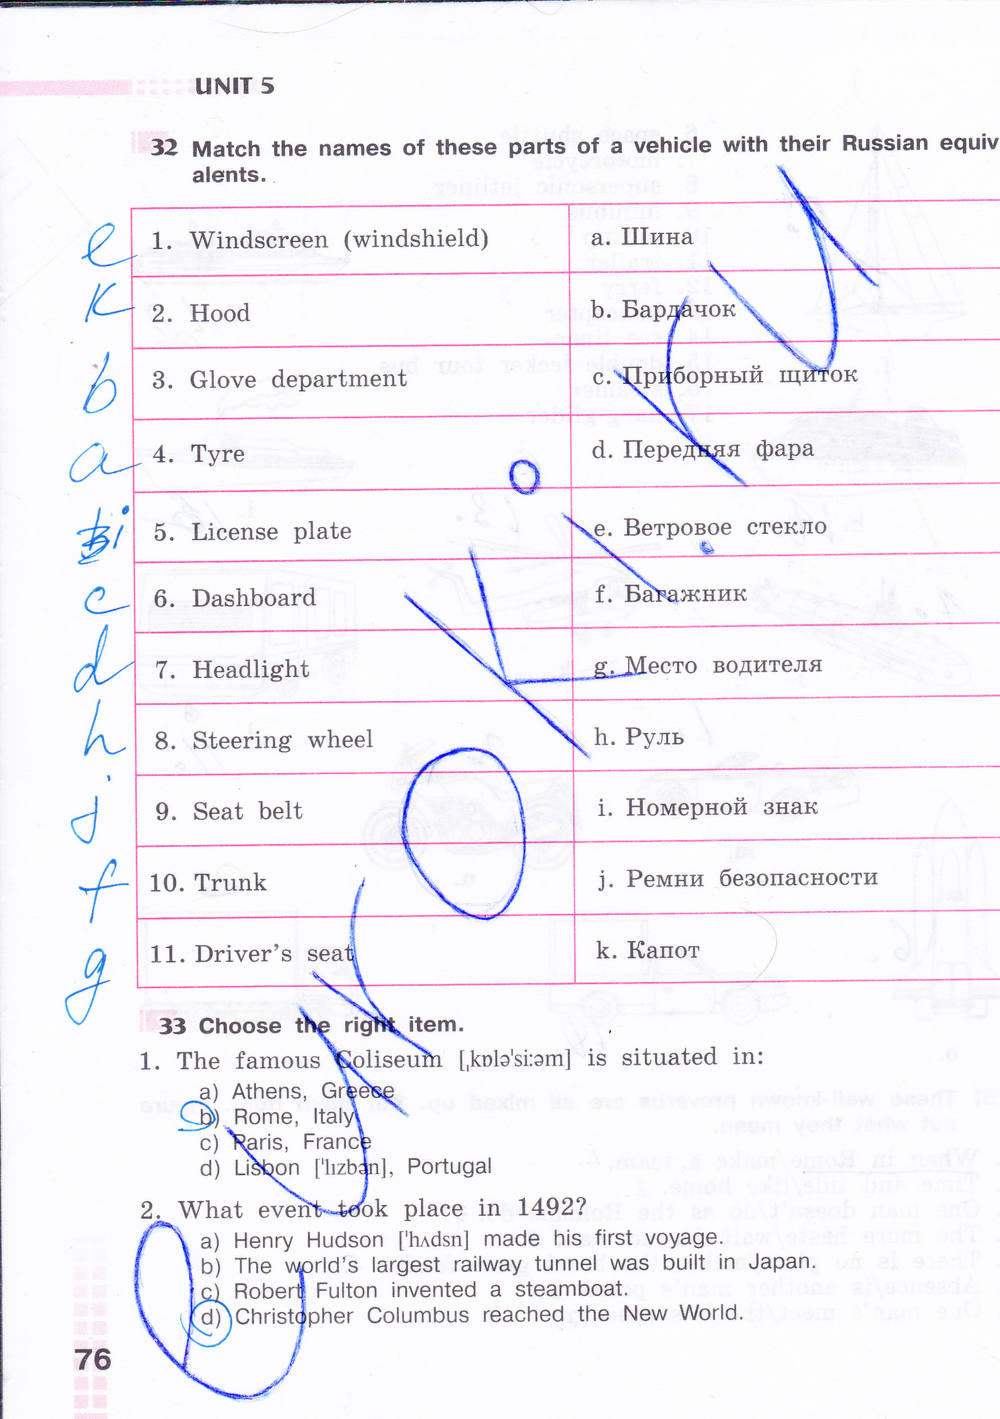 UNIT 5
32 Match the names of these parts of a vehicle with their Russian equiv
alents.
e 1. Windscreen (windshield) a. Шина
k 2. Hood b. Бардачок
b 3. Glove department c. Приборный щиток
a 4. Tyre d. Передняя фара
i 5. License plate e. Ветровое стекло
c 6. Dashboard f. Багажник
d 7. Headlight g. Место водителя
h 8. Steering wheel h. Руль
j 9. Seat belt i. Номерной знак
f 10. Trunk j. Ремни безопасности
g 11. Driver's seat k. Капот
33 Choose the right item.
1. The famous Coliseum [ˌkɒləˈsiːəm] is situated in:
a) Athens, Greece
b) Rome, Italy
c) Paris, France
d) Lisbon [ˈlɪzbən], Portugal
2. What event took place in 1492?
a) Henry Hudson [ˈhʌdsn] made his first voyage.
b) The world's largest railway tunnel was built in Japan.
c) Robert Fulton invented a steamboat.
d) Christopher Columbus reached the New World.
76